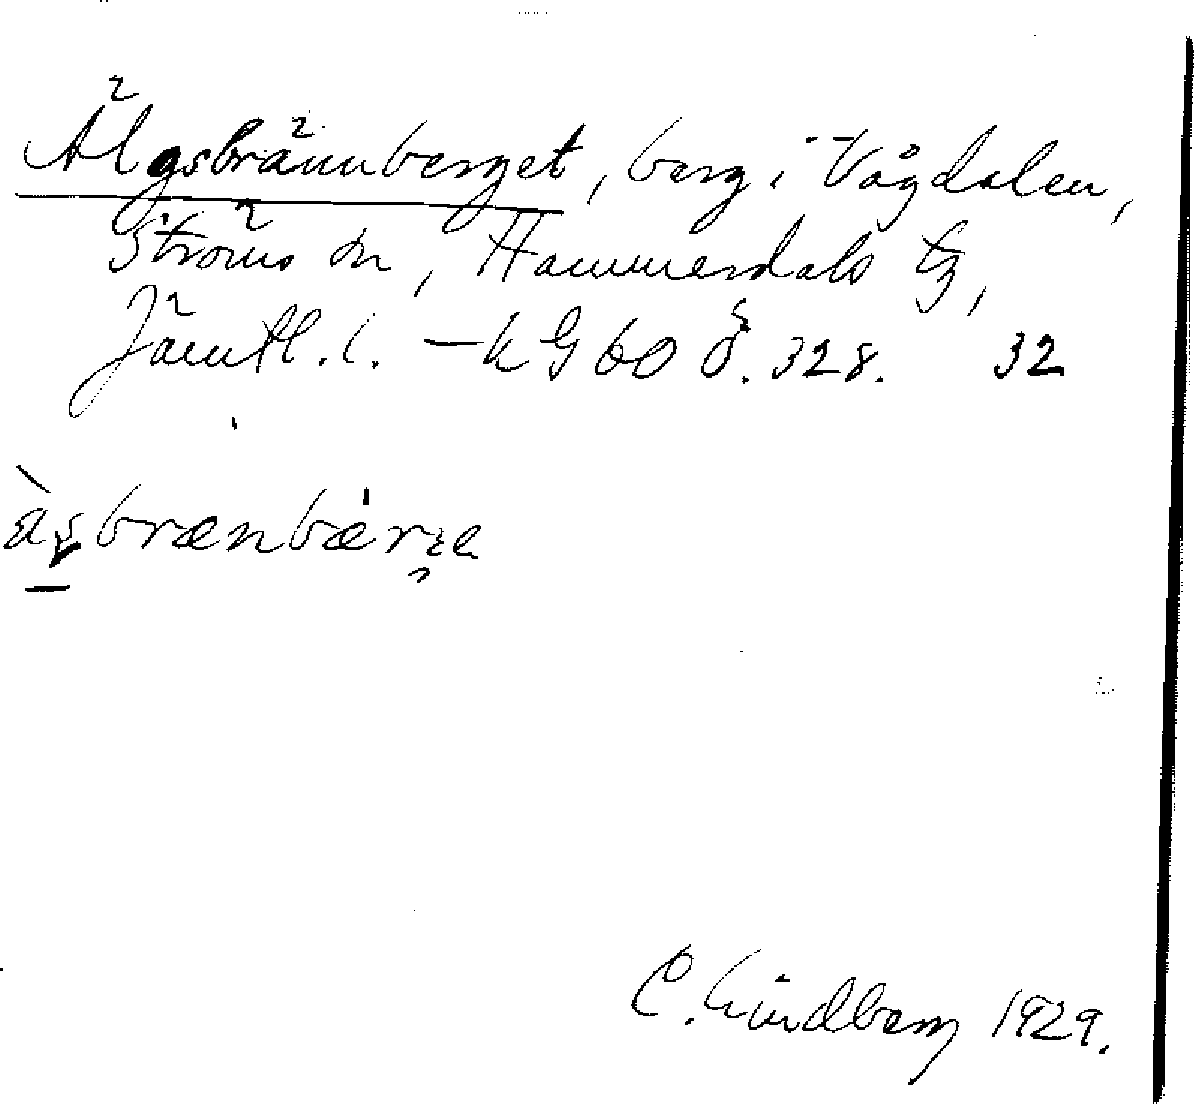 Älgsbrännberget, berg i Vågdalen,
Ströms sn, Hammerdals tg,
Jämtl. l. – kG 60 Ö. 328. 32
àsbrænbærje
C. Lindberg 1929.